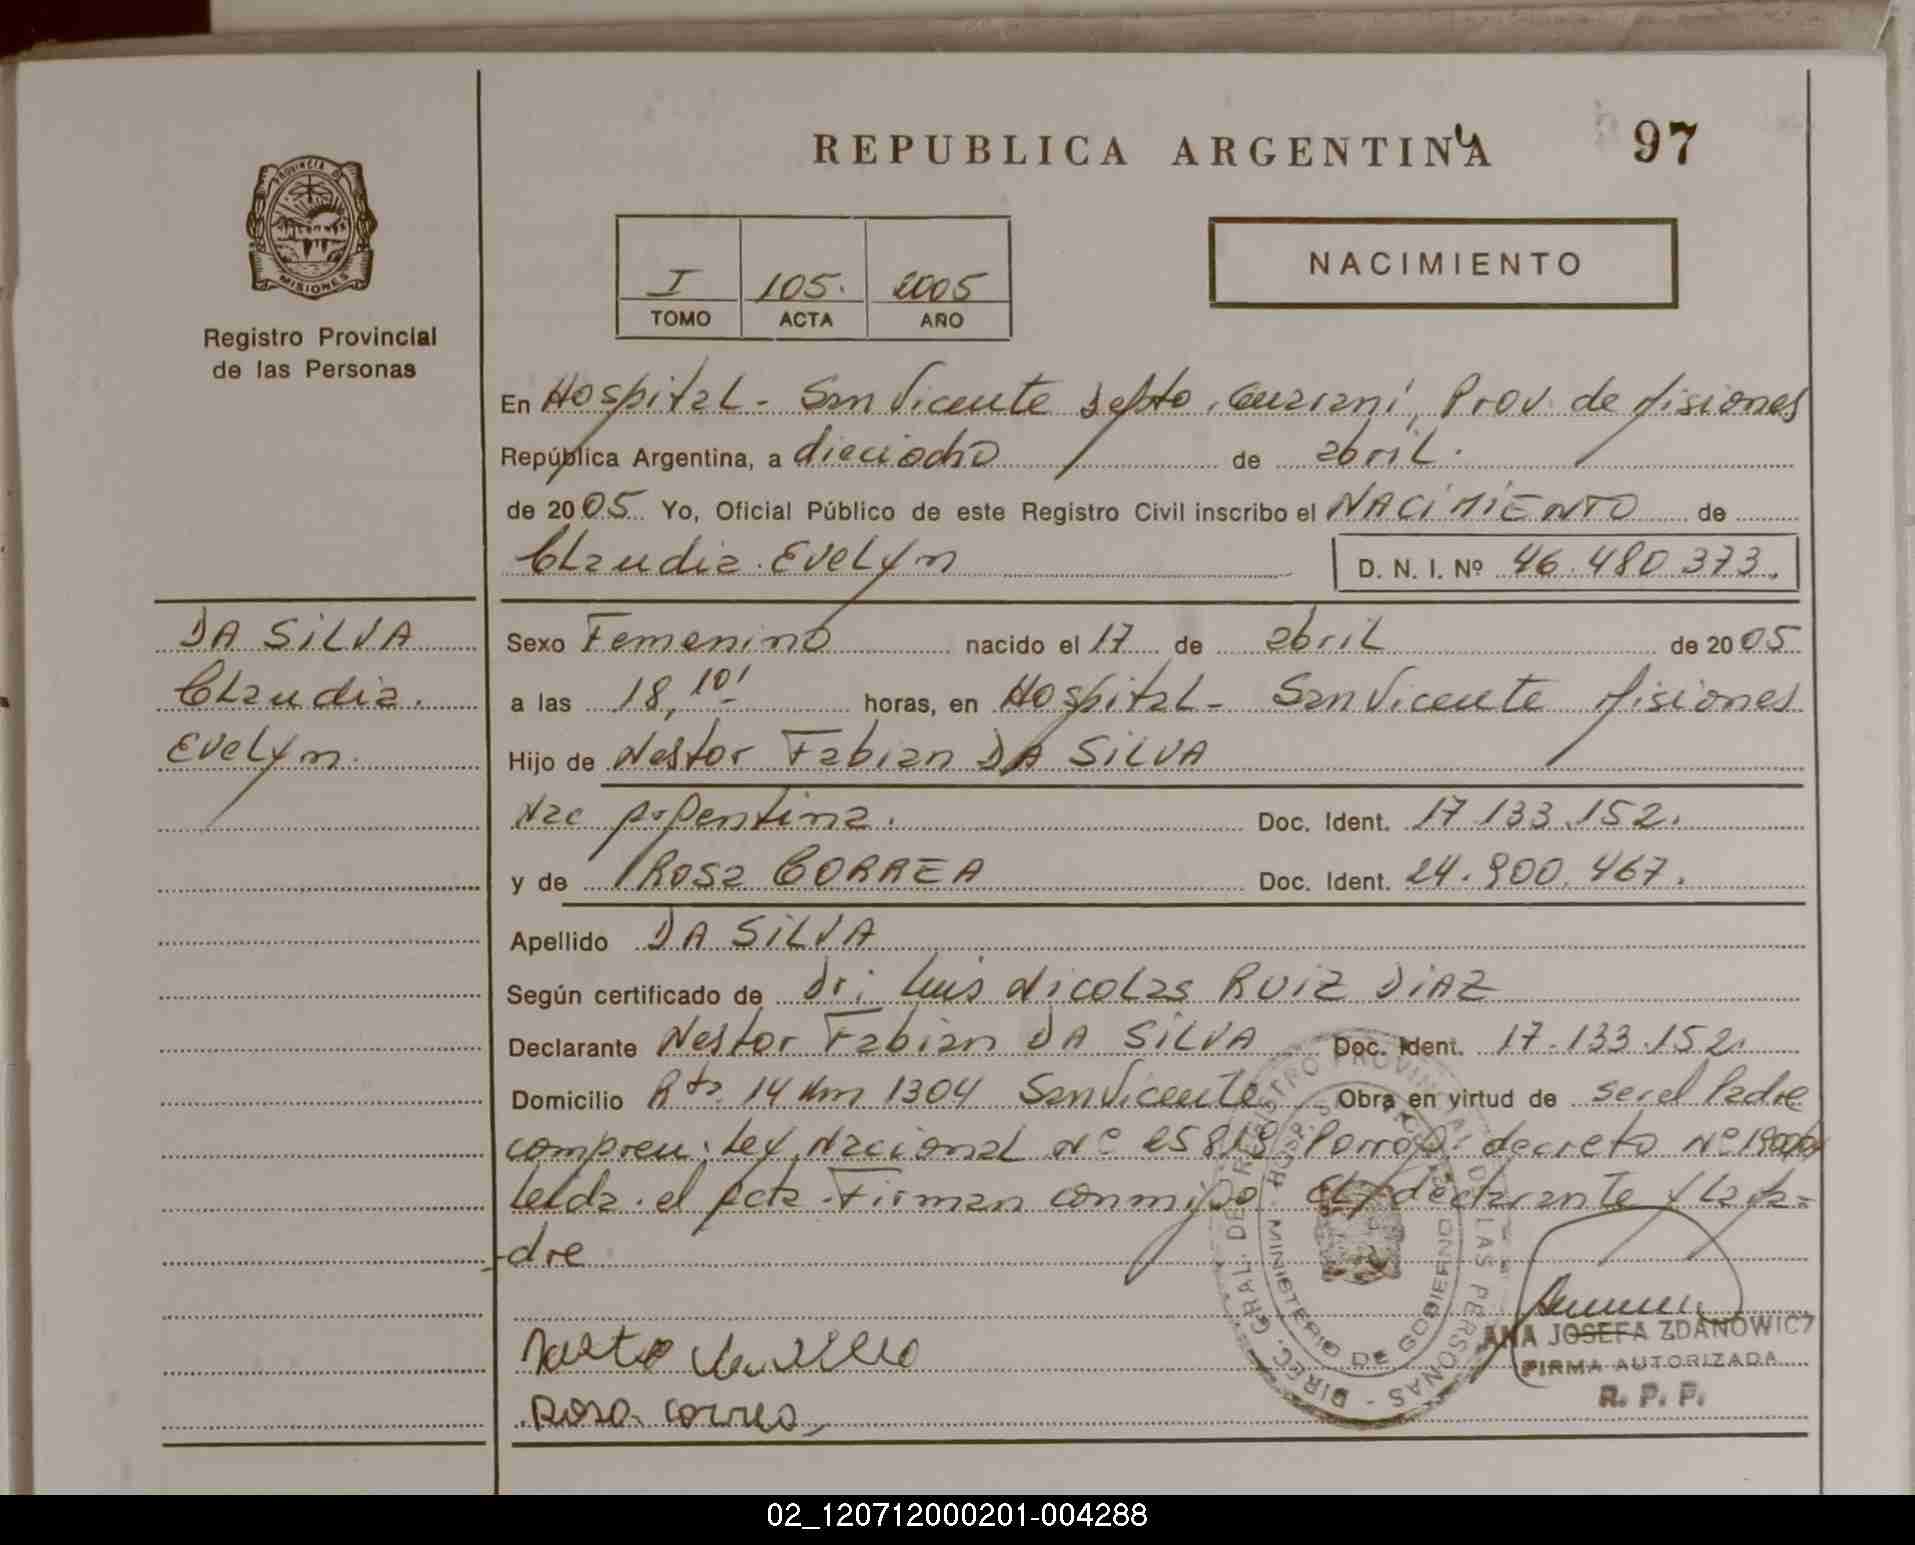 REPUBLICA ARGENTINA
97
PROVINCIA DE
MISIONES
Registro Provincial
de las Personas
I 105. 2005
TOMO ACTA AÑO
NACIMIENTO
En Hospital - San Vicente Depto. Guarani, Prov. de Misiones
República Argentina, a dieciocho de abril.
de 2005 Yo, Oficial Público de este Registro Civil inscribo el NACIMIENTO de
Claudia Evelyn D. N. I. Nº 46.480.373.
DA SILVA
Claudia.
Evelyn.
Sexo Femenino nacido el 17 de abril de 2005
a las 18,10' horas, en Hospital - San Vicente Misiones
Hijo de Nestor Fabian DA SILVA
Nac Argentina. Doc. Ident. 17.133.152.
y de Rosa CORREA Doc. Ident. 24.900.467.
Apellido DA SILVA
Según certificado de Dr; Luis Nicolas RUIZ DIAZ
Declarante Nestor Fabian DA SILVA Doc. Ident. 17.133.152.
Domicilio Rta. 14 Km 1304 San Vicente Obra en virtud de ser el Padre
compren: Ley Nacional Nº 25818 decreto Nº
Leida el Acta Firman conmigo El declarante y La Ma-
dre
Rosa Correa
DIREC. GRAL. DE REGISTRO PROVINCIAL DE LAS PERSONAS
MINISTERIO DE GOBIERNO
ANA JOSEFA ZDANOWICZ
FIRMA AUTORIZADA
R. P. P.
02_120712000201-004288